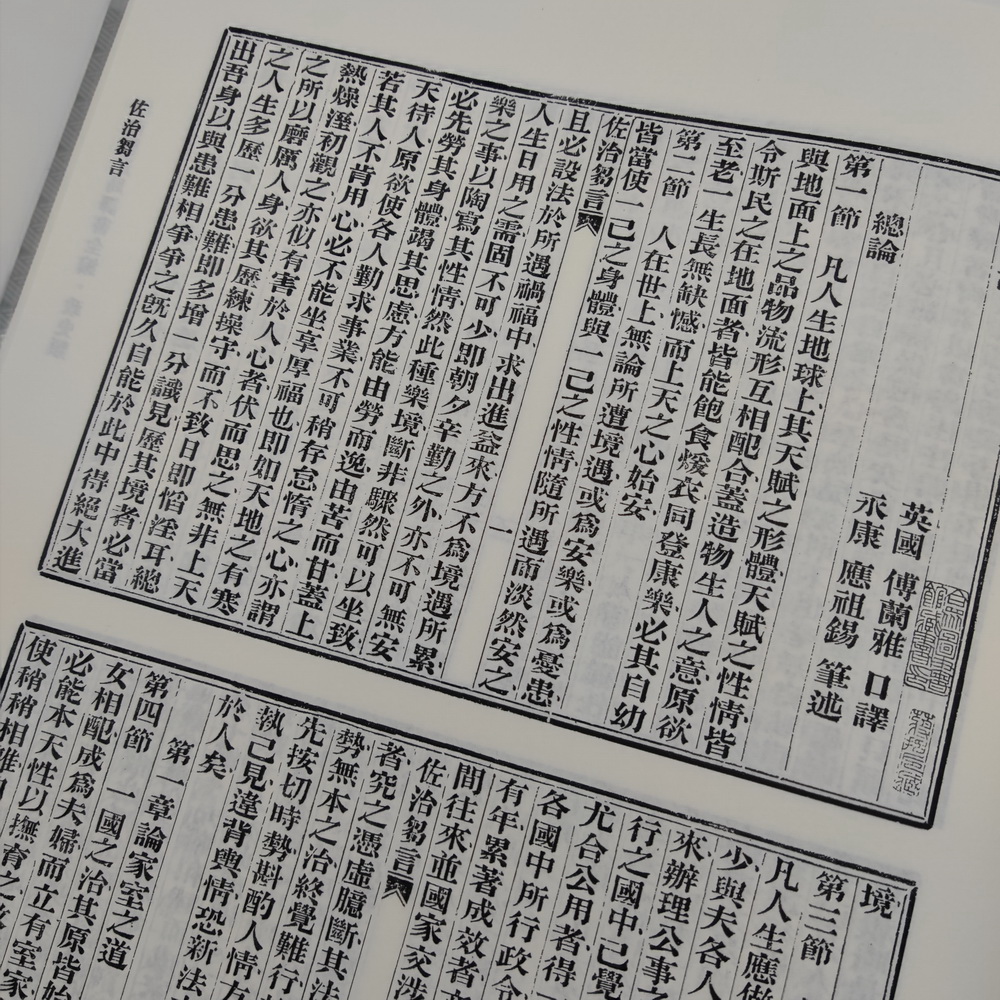 英國 傅蘭雅 口譯
永康 應祖錫 筆述
總論
第一節 凡人生地球上其天賦之形體天賦之性情皆
與地面上之品物流形互相配合蓋造物生人之意原欲
令斯民之在地面者皆能飽食煖衣同登康樂必其自幼
至老一生長無缺憾而上天之心始安
第二節 人在世上無論所遭境遇或爲安樂或爲憂患
皆當使一己之身體與一己之性情隨所遇而淡然安之
佐治芻言 一
且必設法於所遇禍福中求出進益來方不爲境遇所累
人生日用之需固不可少即朝夕辛勤之外亦不可無安
樂之事以陶寫其性情然此種樂境斷非驟然可以坐致
必先勞其身體竭其思慮方能由勞而逸由苦而甘蓋上
天待人原欲使各人勤求事業不可稍存怠惰之心亦謂
若其人不肯用心必不能坐享厚福也即如天地之有寒
熱燥溼初觀之亦似有害於人心者伏而思之無非上天
之所以磨厲人身欲其歷練操守而不致日即慆淫耳總
之人生多歷一分患難即多增一分識見歷其境者必當
出吾身以與患難相爭爭之旣久自能於此中得絕大進
佐治芻言
境
第三節
凡人生應做
少與夫各人
來辦理公事之
行之國中已覺
尤合公用者得
各國中所行政令
有年累著成效者
間往來並國家交涉
佐治芻言
者究之憑虛臆斷其
勢無本之治終覺難行
先按切時勢斟酌人情方
執己見違背輿情恐新法
於人矣
第一章論家室之道
第四節 一國之治其原皆始
女相配成爲夫婦而立有室家
必能本天性以撫育之
使稍稍相維